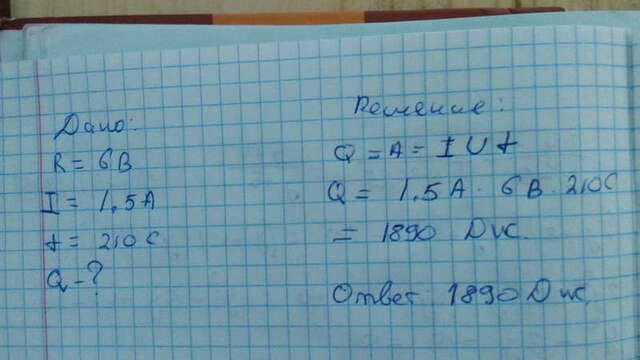 Дано:
R = 6В
I = 1,5А
t = 210 С
Q - ?
Решение:
Q = A = I U t
Q = 1,5А · 6В · 210С
= 1890 Дж.
Ответ 1890 Дж.